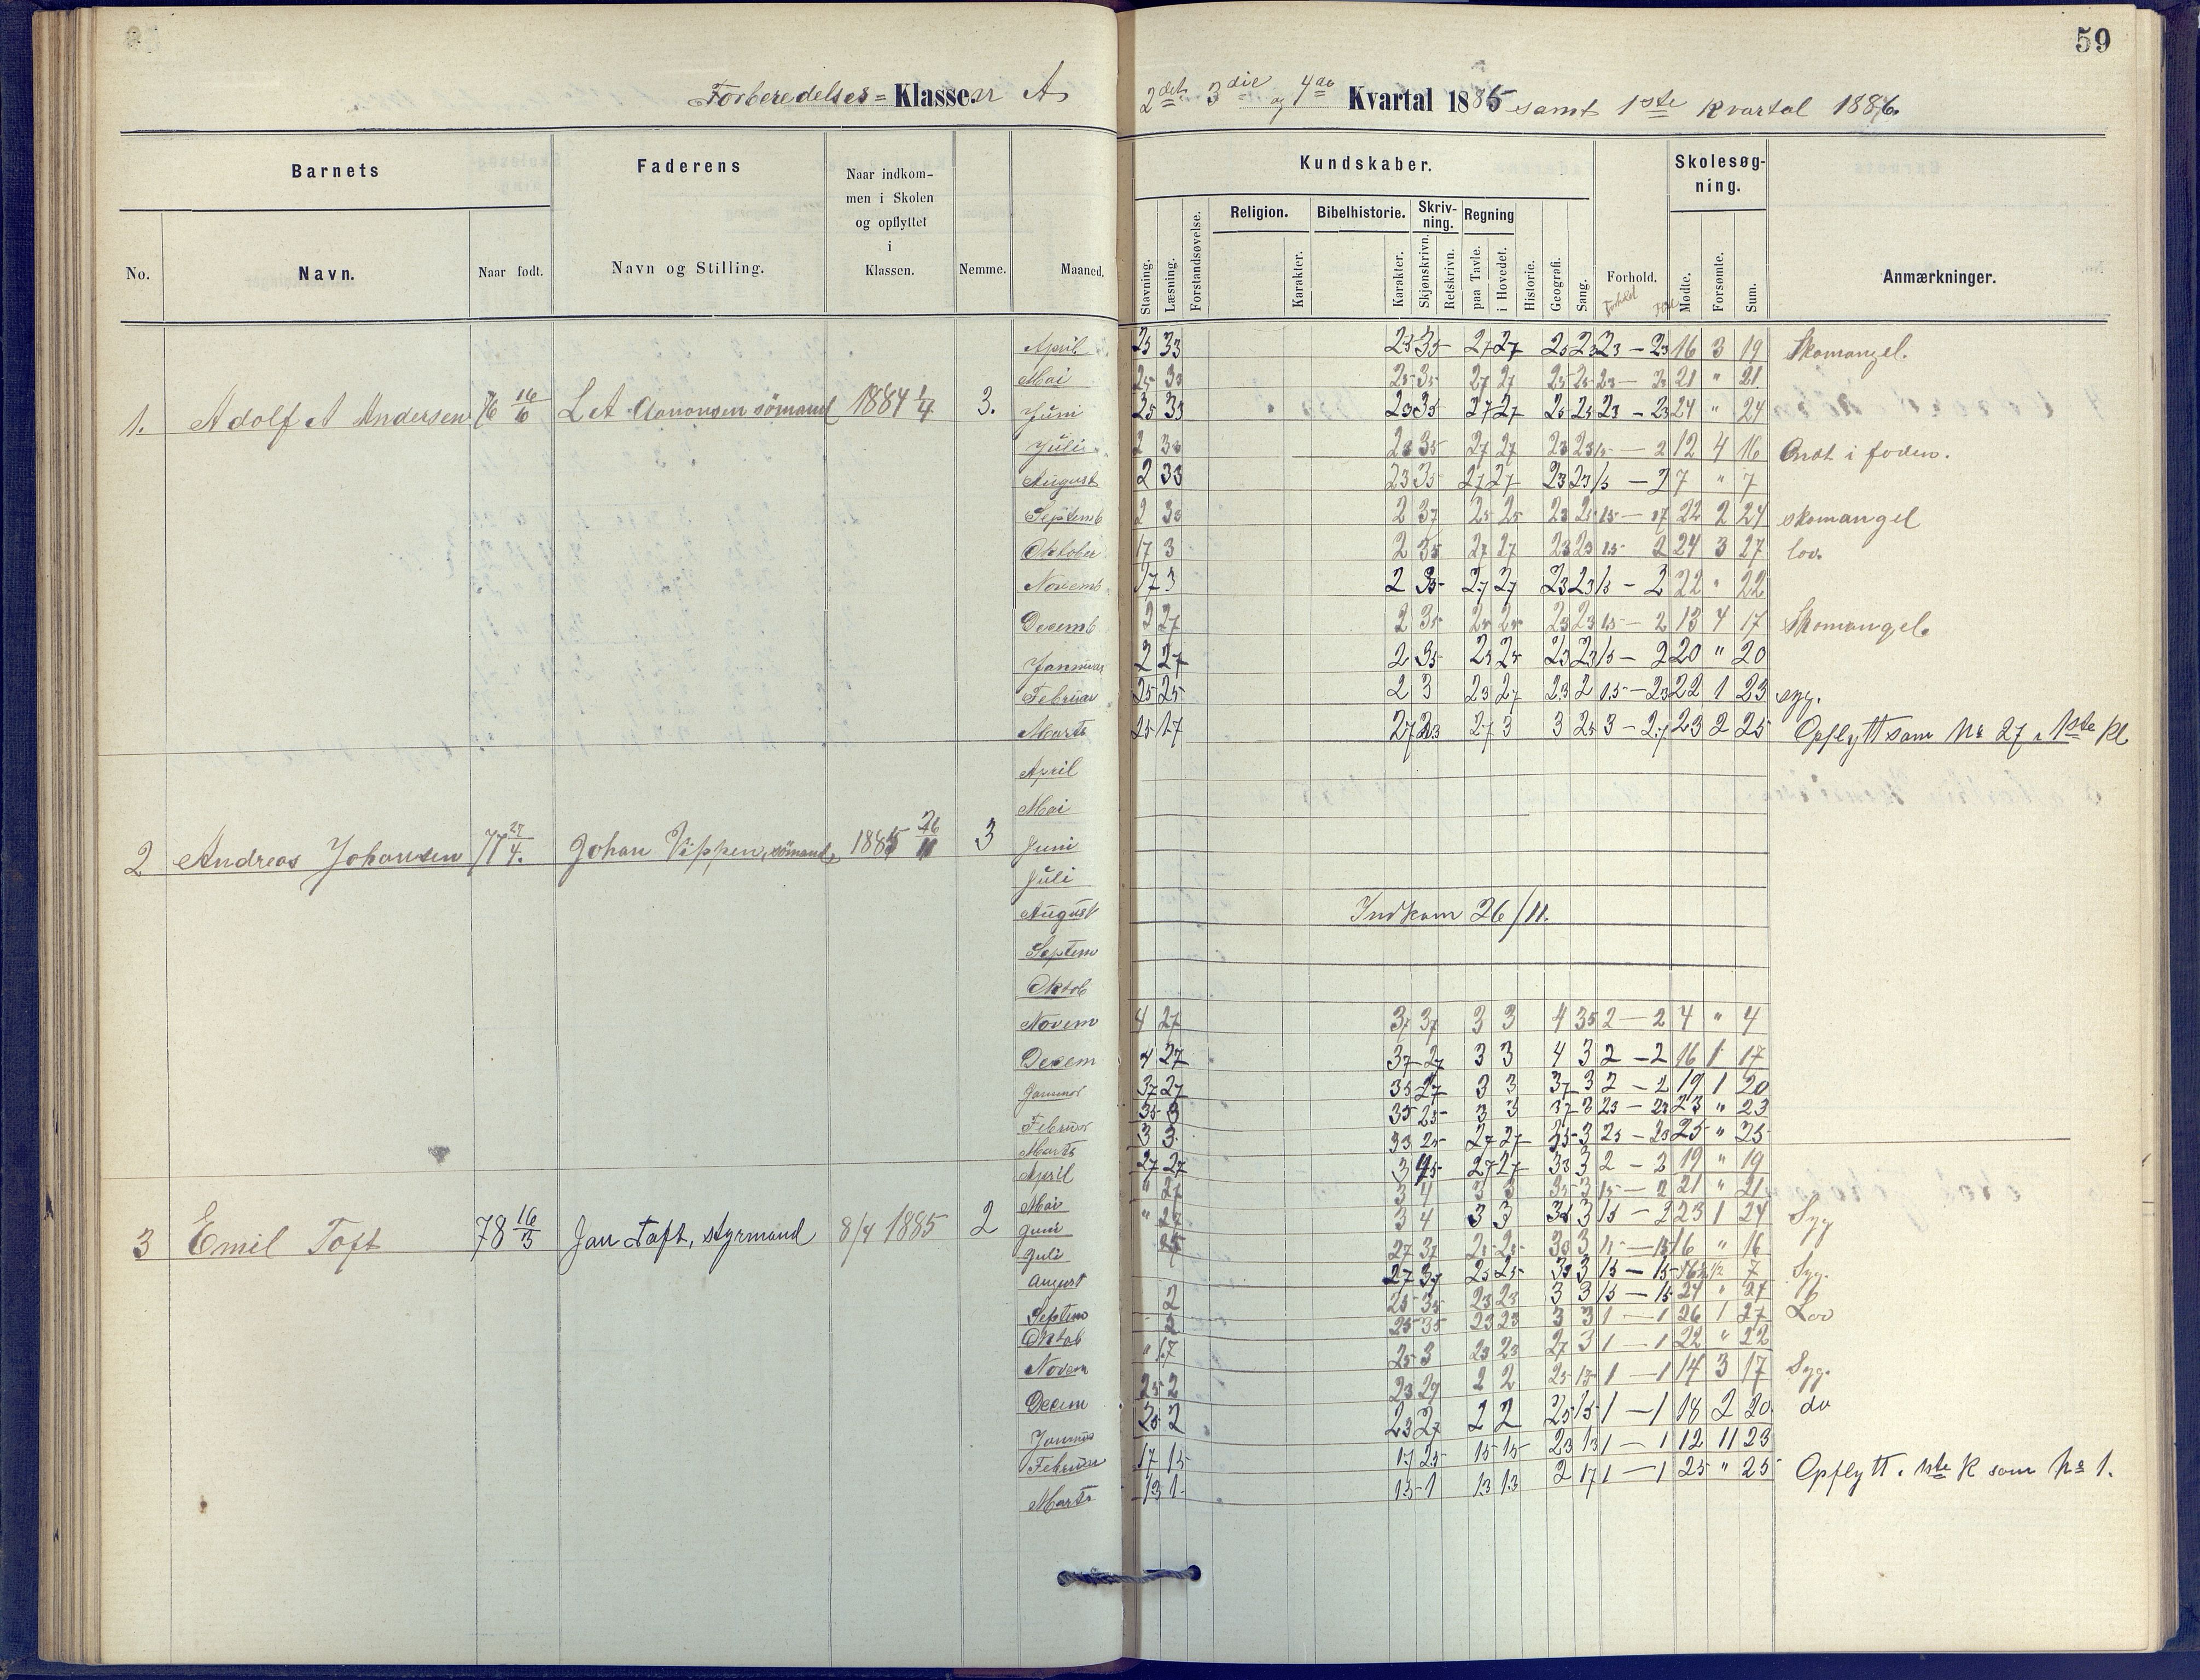 59
Forberedelses= Klassen A
2det 3die og 4de Kvartal 1885 samt 1ste Kvartal 1886.
Barnets
Faderens
Naar indkom-
men i Skolen
og opflyttet
i
Klassen.
No.
Navn.
Naar født.
Navn og Stilling.
Nemme.
Maaned.
Kundskaber.
Skolesøg-
ning.
Religion.
Bibelhistorie.
Skriv-
ning.
Regning
Stavning.
Læsning.
Forstandsøvelse.
Karakter.
Karakter.
Skjønskrivn.
Retskrivn.
paa Tavle.
i Hovedet.
Historie.
Geografi.
Sang.
Forhold.
Mødte.
Forsømte.
Sum.
Anmærkninger.
1. Adolf A Andersen 76 16/6 L A sømand 1884 1/4 3.
April 25 33 23 35 27 27 25 23 23 – 23 16 3 19 Skomangel.
Mai 25 33 25 35 27 27 25 25 23 – 21 " 21
Juni 25 33 23 35 27 27 25 25 23 – 23 24 " 24
Juli 2 33 23 35 27 27 23 23 15 – 2 12 4 16 Ondt i foden.
August 2 33 23 35 27 27 23 23 15 – 2 7 " 7
Septemb 2 33 2 37 25 25 23 25 15 – 17 22 2 24 skomangel
Oktober 17 3 2 35 27 27 23 23 15 – 2 24 3 27 lov.
Novemb 17 3 2 35 27 27 23 23 15 – 2 22 " 22
Decemb 2 27 2 35 25 25 23 23 15 – 2 13 4 17 Skomangel.
Januar 2 27 2 35 25 25 23 23 15 – 2 20 " 20
Februar 25 25 2 3 23 27 23 2 15 – 23 22 1 23 syg.
Marts 15 17 27 23 27 3 3 25 3 – 27 23 2 25 Opflytt som No 27 i 1ste Kl.
2 Andreas Johansen 77 27/4. Johan Vippen, sømand, 1885 26/11 3
April
Mai
Juni
Juli
August Indkom 26/11.
Septem
Oktob
Novem 4 27 37 37 3 3 4 35 2 – 2 4 " 4
Decem 4 27 37 27 3 3 4 3 2 – 2 16 1 17
Januar 37 27 35 27 3 3 37 3 2 – 2 19 1 20
Februar 35 3 35 25 3 3 37 3 23 – 23 23 " 23
Marts 3 3 33 25 27 27 35 3 25 – 23 25 " 25
3 Emil Toft 78 16/3 Jan Toft, styrmand 8/4 1885 2
April 27 27 3 45 27 27 33 3 2 – 2 19 " 19
Mai " 27 3 4 3 3 35 3 15 – 2 21 " 21
Juni " 27 3 4 3 3 33 3 15 – 2 23 1 24 Syg
Juli 25 27 37 25 25 33 3 15 – 15 16 " 16
August 27 37 25 25 33 3 15 – 15 6½ ½ 7 Syg.
Septem 2 25 35 23 23 3 3 15 – 15 27 " 27
Oktob 2 25 35 23 23 3 3 1 – 1 26 1 27 Lov
Novem " 17 25 3 23 23 27 3 1 – 1 22 " 22
Decem 25 2 23 27 2 2 25 15 1 – 1 14 3 17 Syg.
Januar 25 2 23 27 2 2 25 15 1 – 1 18 2 20 do
Februar 17 15 17 25 15 15 23 13 1 – 1 12 11 23
Marts 13 1 15 1 13 13 2 17 1 – 1 25 " 25 Opflytt i 1ste K som No 1.